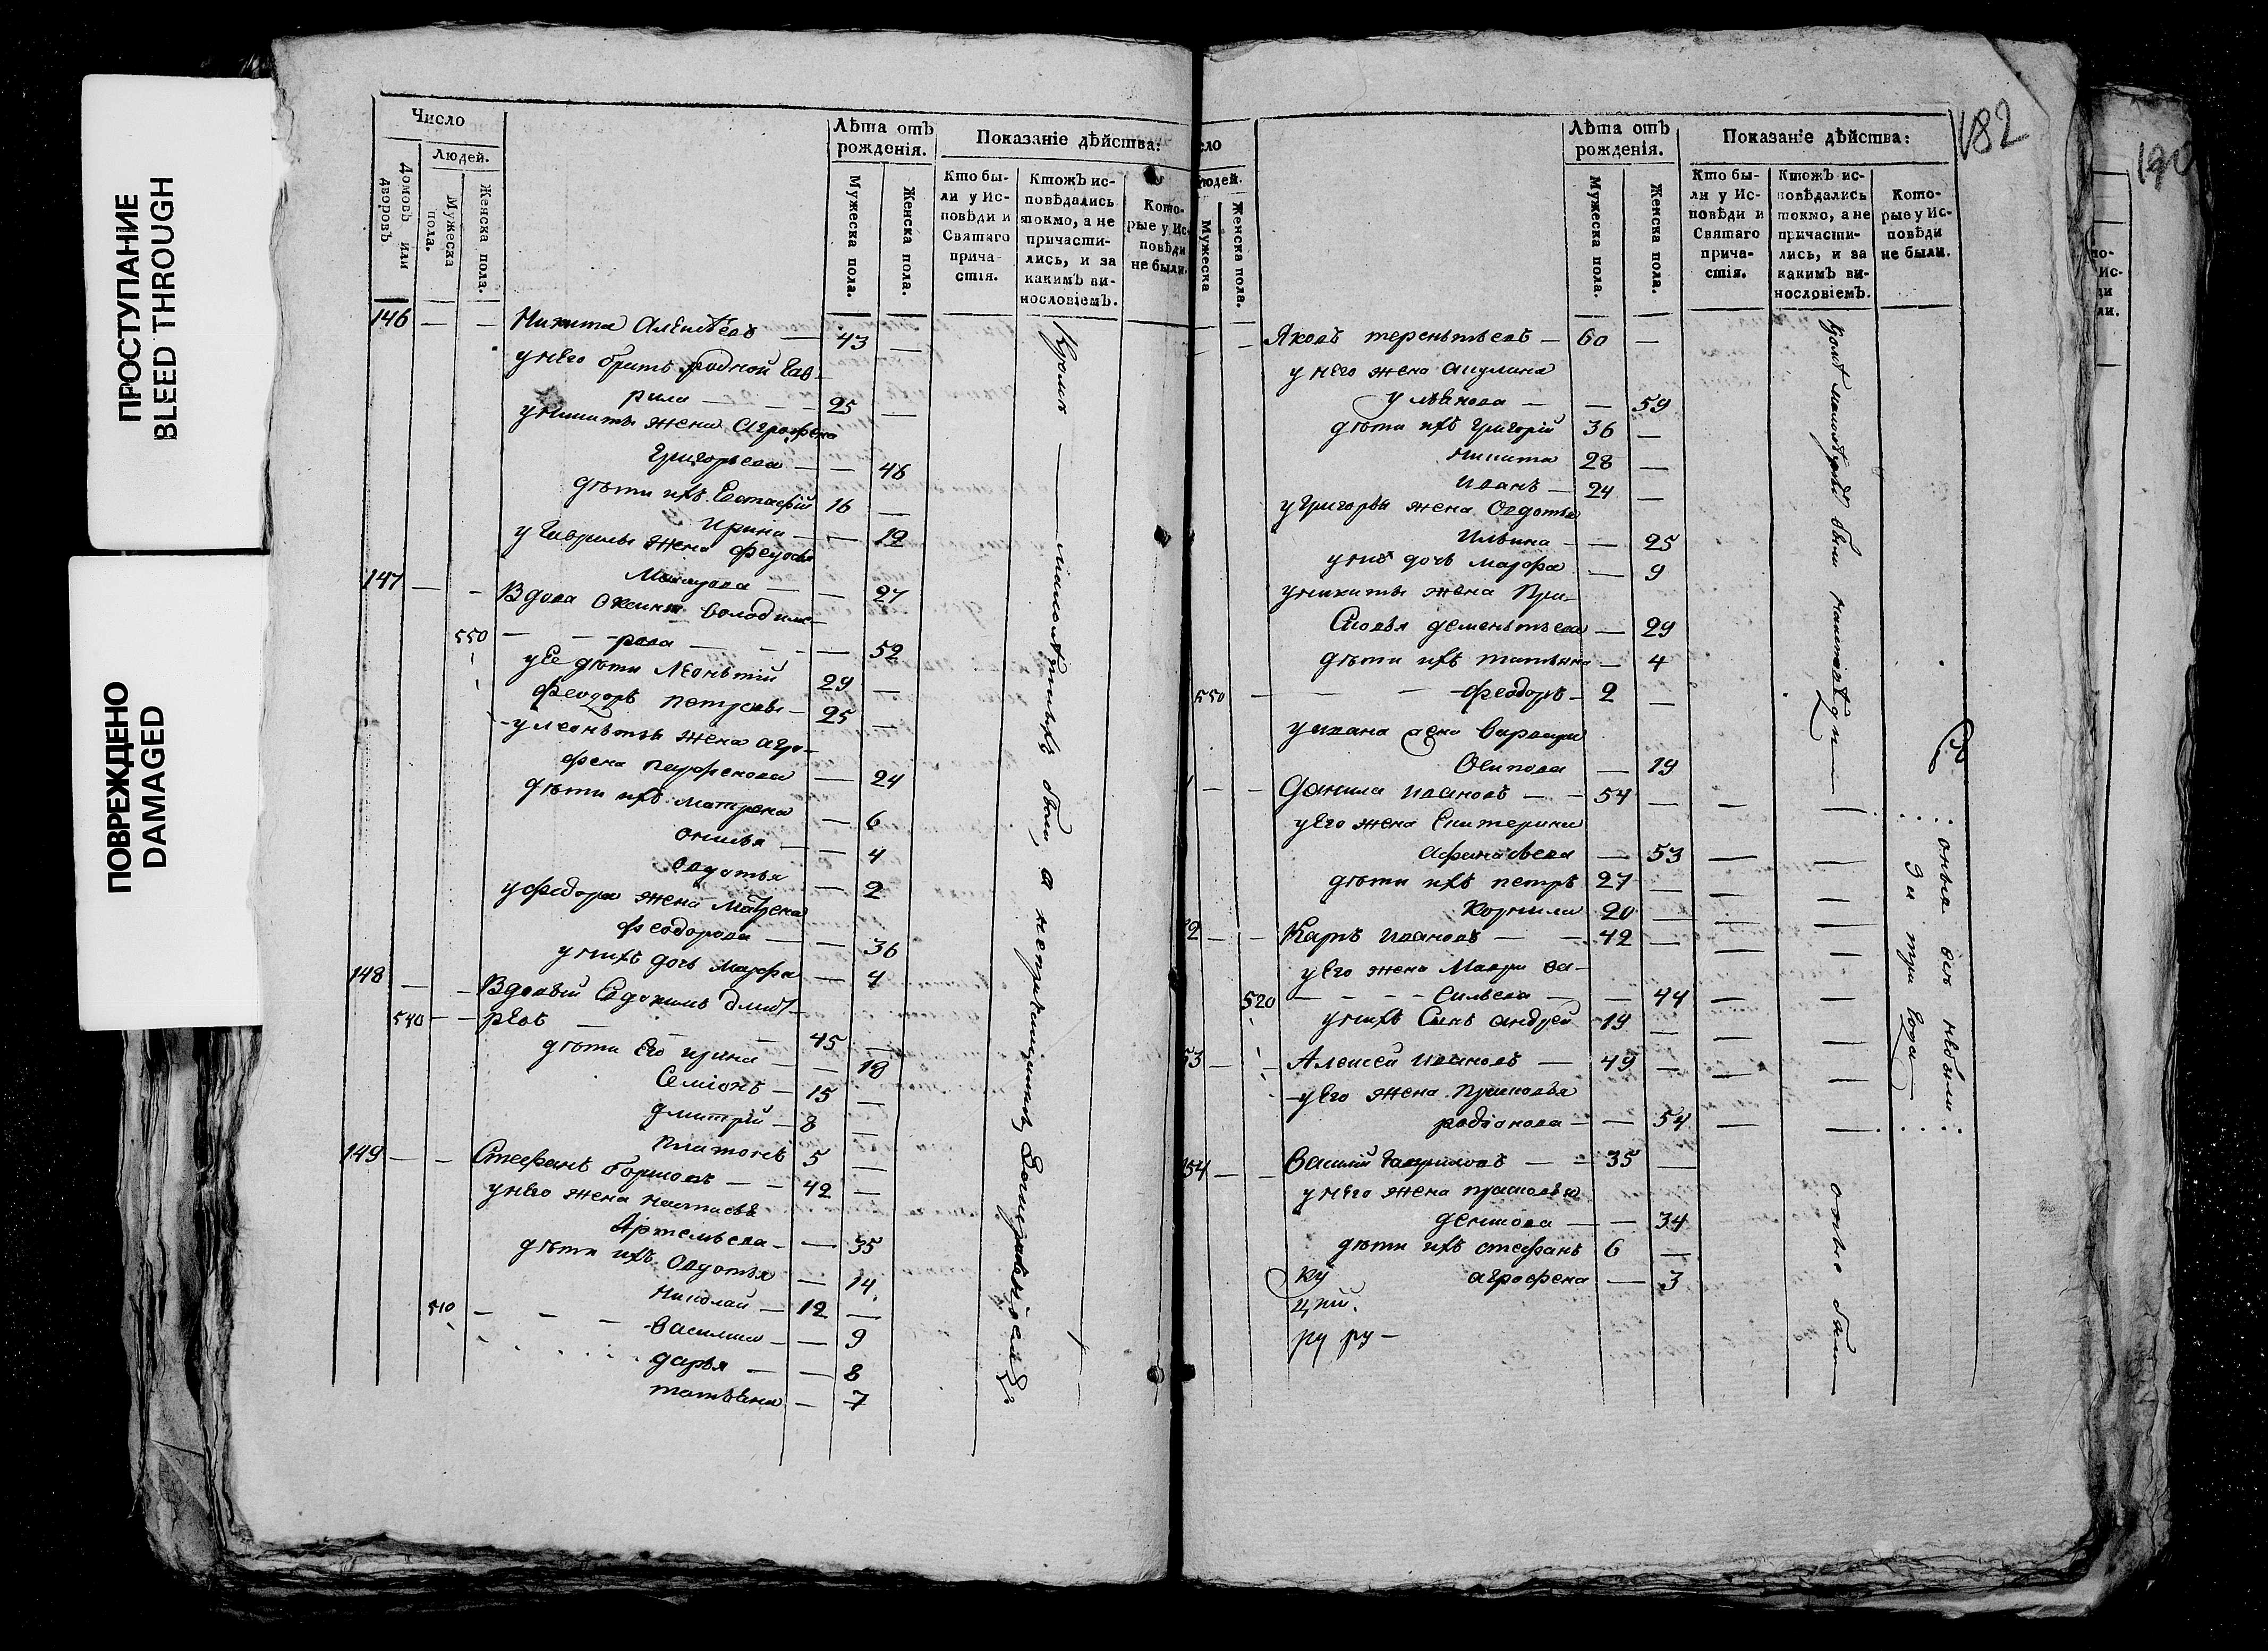 ПРОСТУПАНИЕ
BLEED THROUGH
ПОВРЕЖДЕНО
DAMAGED
Число
Людей.
Домовъ или дворовъ
Мужеска пола.
Женска пола.
Лѣта отъ рожденія.
Мужеска пола.
Женска пола.
Показаніе дѣйства:
Кто бы-
ли у Ис-
повѣди и
Святаго
прича-
стія.
Ктожъ ис-
повѣдались
токмо, а не
причасти-
лись, и за
какимъ ви-
нословіемъ.
Кото-
рые у Ис-
повѣди
не были.
146 — — Никита — 43 —
у него братъ родной Гав-
рила — — — 25 —
у никиты жена Агрофена
Григорьева — — 46
дѣти ихъ Евстафій 16 —
Ирина — — 12
у Гаврилы жена
— — 27
147 — — Вдова Володиме-
550 — — рова — — — 52
у Ее дѣти Леонътій 29 —
Феодоръ Петровы — 25 —
у леонътья жена агро-
фена парфенова — 24
дѣти ихъ матрена — 6
— — 4
Овдотья — 2
у федора жена Матрена
Феодорова — — 36
у нихъ дочь Марфа — 4
148 — — Вдовый Евдокимъ дмит-
540 — — рЕвъ — — — 45 —
дѣти Его ирина — — 18
Семіонъ — 15 —
дмитрій — 8 —
платонъ 5 —
149 — — Стефанъ — — 42 —
у него жена настасья
Артемьева — — 35
дѣти ихъ Овдотья — 14.
Николай — 12 —
510 — — — василиса — — 9
дарья — — 8
татьяна — 7
Кромѣ — — были, а
182
Людей.
Мужеска
Женска пола.
Лѣта отъ рожденія.
Мужеска пола.
Женска пола.
Показаніе дѣйства:
Кто бы-
ли у Ис-
повѣди и
Святаго
прича-
стія.
Ктожъ ис-
повѣдались
токмо, а не
причасти-
лись, и за
какимъ ви-
нословіемъ.
Кото-
рые у Ис-
повѣди
не были.
— — Яковъ терентьевъ — 60 —
у него жена акулина
— — 59
дѣти ихъ Григорій 36 —
Никита 28 —
Иванъ — 24 —
у Григорья жена Овдотья
Ильина — — 25
у нихъ дочь марфа — 9
у никиты жена Пра-
сковья дементьева — 29
дѣти ихъ татьяна — 4
550 — — — феодоръ — 2 —
у ивана жена варвара
Осипова — 19
— — Данила ивановъ — — 54 —
у Его жена Екатерина
афанасьева — 53
дѣти ихъ петръ 27 —
Корнила 20 —
2 — — Карпъ ивановъ — — 42 —
у Его жена Мавра ва-
520 — — — — сильева — — 44
у нихъ Сынъ андрей 19 —
53 — — Алексей ивановъ — 49 —
у Его жена Прасковья
родіонова — — 54
54 — — василій гавриловъ — — 35 —
у него жена прасковья
— — 34
дѣти ихъ стефанъ 6 —
агрофена — 3
ку
ций.
ру ру —
были
оные всѣ не были
3 и три года
были
190